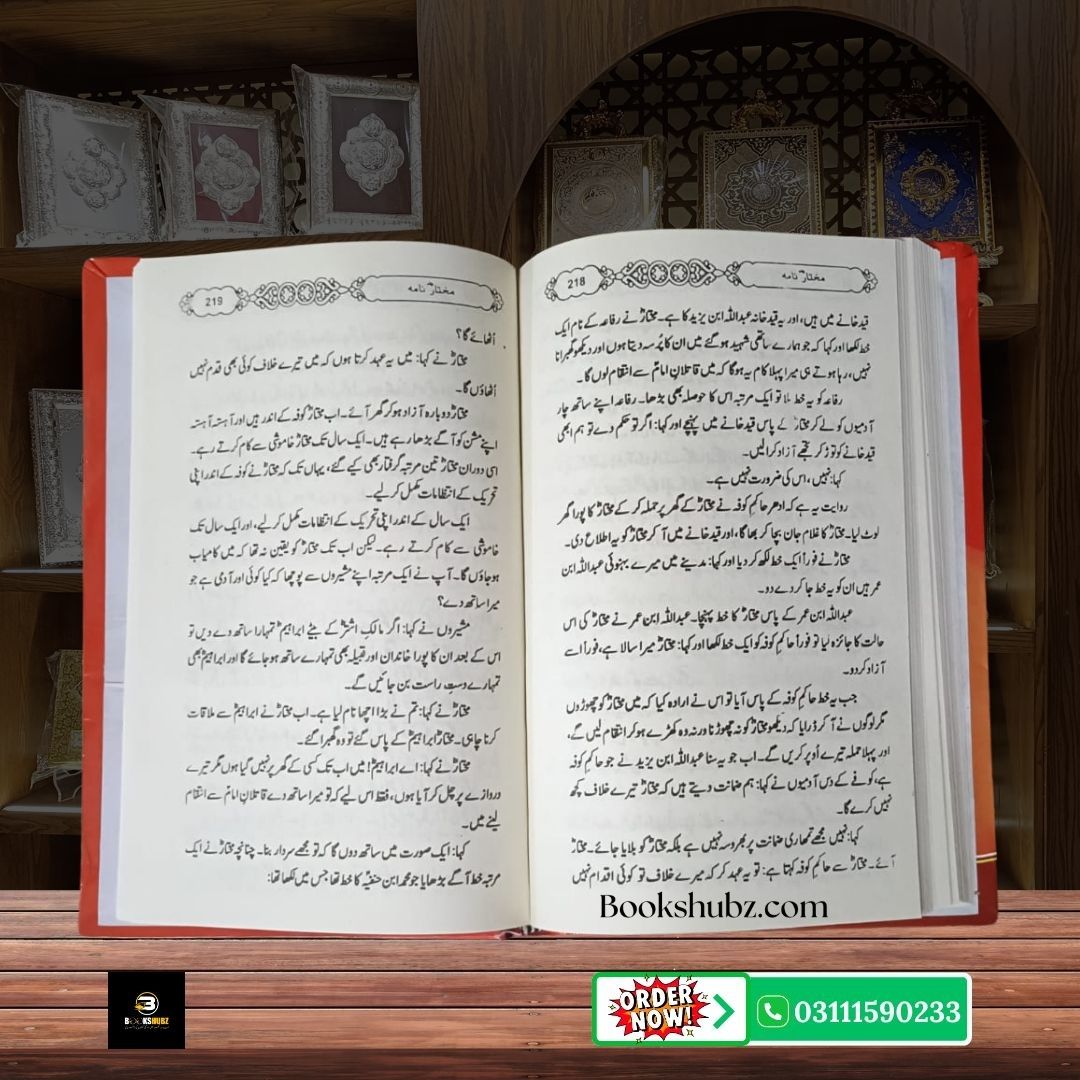 مختار نامہ
218
قید خانے میں ہیں، اور یہ قید خانہ عبداللہ ابن یزید کا ہے۔ مختارؒ نے رفاعہ کے نام ایک
خط لکھا اور کہا کہ جو ہمارے ساتھی شہید ہو گئے میں ان کا پُرسہ دیتا ہوں اور دیکھو گھبرانا
نہیں، رہا ہوتے ہی میرا پہلا کام یہ ہوگا کہ میں قاتلانِ امامؑ سے انتقام لوں گا۔
رفاعہ کو یہ خط ملا تو ایک مرتبہ اس کا حوصلہ بھی بڑھا۔ رفاعہ اپنے ساتھ چار
آدمیوں کو لے کر مختارؒ کے پاس قید خانے میں پہنچے اور کہا: اگر تو حکم دے تو ہم ابھی
قید خانے کو توڑ کر تجھے آزاد کرالیں۔
کہا: نہیں، اس کی ضرورت نہیں ہے۔
روایت یہ ہے کہ ادھر حاکمِ کوفہ نے مختارؒ کے گھر پر حملہ کر کے مختارؒ کا پورا گھر
لوٹ لیا۔ مختارؒ کا غلام جان بچا کر بھاگا، اور قید خانے میں آ کر مختارؒ کو یہ اطلاع دی۔
مختارؒ نے فوراً ایک خط لکھ کر دیا اور کہا: مدینے میں میرے بہنوئی عبداللہ ابن
عمر ہیں ان کو یہ خط جا کر دے دو۔
عبداللہ ابن عمر کے پاس مختارؒ کا خط پہنچا۔ عبداللہ ابن عمر نے مختارؒ کی اس
حالت کا جائزہ لیا تو فوراً حاکمِ کوفہ کو ایک خط لکھا اور کہا: مختارؒ میرا سالا ہے، فوراً اسے
آزاد کر دو۔
جب یہ خط حاکمِ کوفہ کے پاس آیا تو اس نے ارادہ کیا کہ میں مختارؒ کو چھوڑوں
مگر لوگوں نے آ کر ڈرایا کہ دیکھو مختارؒ کو نہ چھوڑنا ورنہ وہ کھڑے ہو کر انتقام لیں گے،
اور پہلا حملہ تیرے اُوپر کریں گے۔ اب جو یہ سنا عبداللہ ابن یزید نے جو حاکمِ کوفہ
ہے، کوفے کے دس آدمیوں نے کہا: ہم ضمانت دیتے ہیں کہ مختارؒ تیرے خلاف کچھ
نہیں کرے گا۔
کہا: نہیں مجھے تمھاری ضمانت پر بھروسہ نہیں ہے بلکہ مختارؒ کو بلایا جائے۔ مختارؒ
آئے۔ مختارؒ سے حاکمِ کوفہ کہتا ہے: تو یہ عہد کر کہ میرے خلاف تو کوئی اقدام نہیں
مختار نامہ
219
اُٹھائے گا؟
مختارؒ نے کہا: میں یہ عہد کرتا ہوں کہ میں تیرے خلاف کوئی بھی قدم نہیں
اُٹھاؤں گا۔
مختارؒ دوبارہ آزاد ہو کر گھر آئے۔ اب مختارؒ کوفہ کے اندر ہیں اور آہستہ آہستہ
اپنے مشن کو آگے بڑھا رہے ہیں۔ ایک سال تک مختارؒ خاموشی سے کام کرتے رہے۔
اسی دوران مختارؒ تین مرتبہ گرفتار بھی کیے گئے، یہاں تک کہ مختارؒ نے کوفہ کے اندر اپنی
تحریک کے انتظامات مکمل کر لیے۔
ایک سال کے اندر اپنی تحریک کے انتظامات مکمل کر لیے، اور ایک سال تک
خاموشی سے کام کرتے رہے۔ لیکن اب تک مختارؒ کو یقین نہ تھا کہ میں کامیاب
ہو جاؤں گا۔ آپ نے ایک مرتبہ اپنے مشیروں سے پوچھا کہ کیا کوئی اور آدمی ہے جو
میرا ساتھ دے؟
مشیروں نے کہا: اگر مالکِ اشترؒ کے بیٹے ابراہیمؒ تمہارا ساتھ دے دیں تو
اس کے بعد ان کا پورا خاندان اور قبیلہ بھی تمہارے ساتھ ہو جائے گا اور ابراہیمؒ بھی
تمہارے دستِ راست بن جائیں گے۔
مختارؒ نے کہا: تم نے بڑا اچھا نام لیا ہے۔ اب مختارؒ نے ابراہیمؒ سے ملاقات
کرنا چاہی۔ مختارؒ ابراہیمؒ کے پاس گئے تو وہ گھبرا گئے۔
مختارؒ نے کہا: اے ابراہیمؒ! میں اب تک کسی کے گھر پر نہیں گیا ہوں مگر تیرے
دروازے پر چل کر آیا ہوں، فقط اس لیے کہ تو میرا ساتھ دے قاتلانِ امامؑ سے انتقام
لینے میں۔
کہا: ایک صورت میں ساتھ دوں گا کہ تو مجھے سردار بنا۔ چنانچہ مختارؒ نے ایک
مرتبہ خط آگے بڑھایا جو محمد ابن حنفیہؒ کا خط تھا جس میں لکھا تھا:
Bookshubz.com
B
BOOKSHUBZ
ORDER NOW!
03111590233